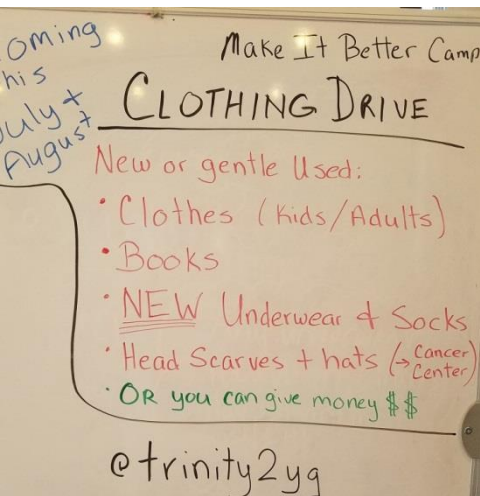 oming
his
uly +
August
Make It Better Camp
CLOTHING DRIVE
New or gentle Used:
• Clothes (Kids/Adults)
• Books
• NEW Underwear & Socks
• Head Scarves + hats (→ Cancer
Center)
• OR you can give money $$
@trinity2yg